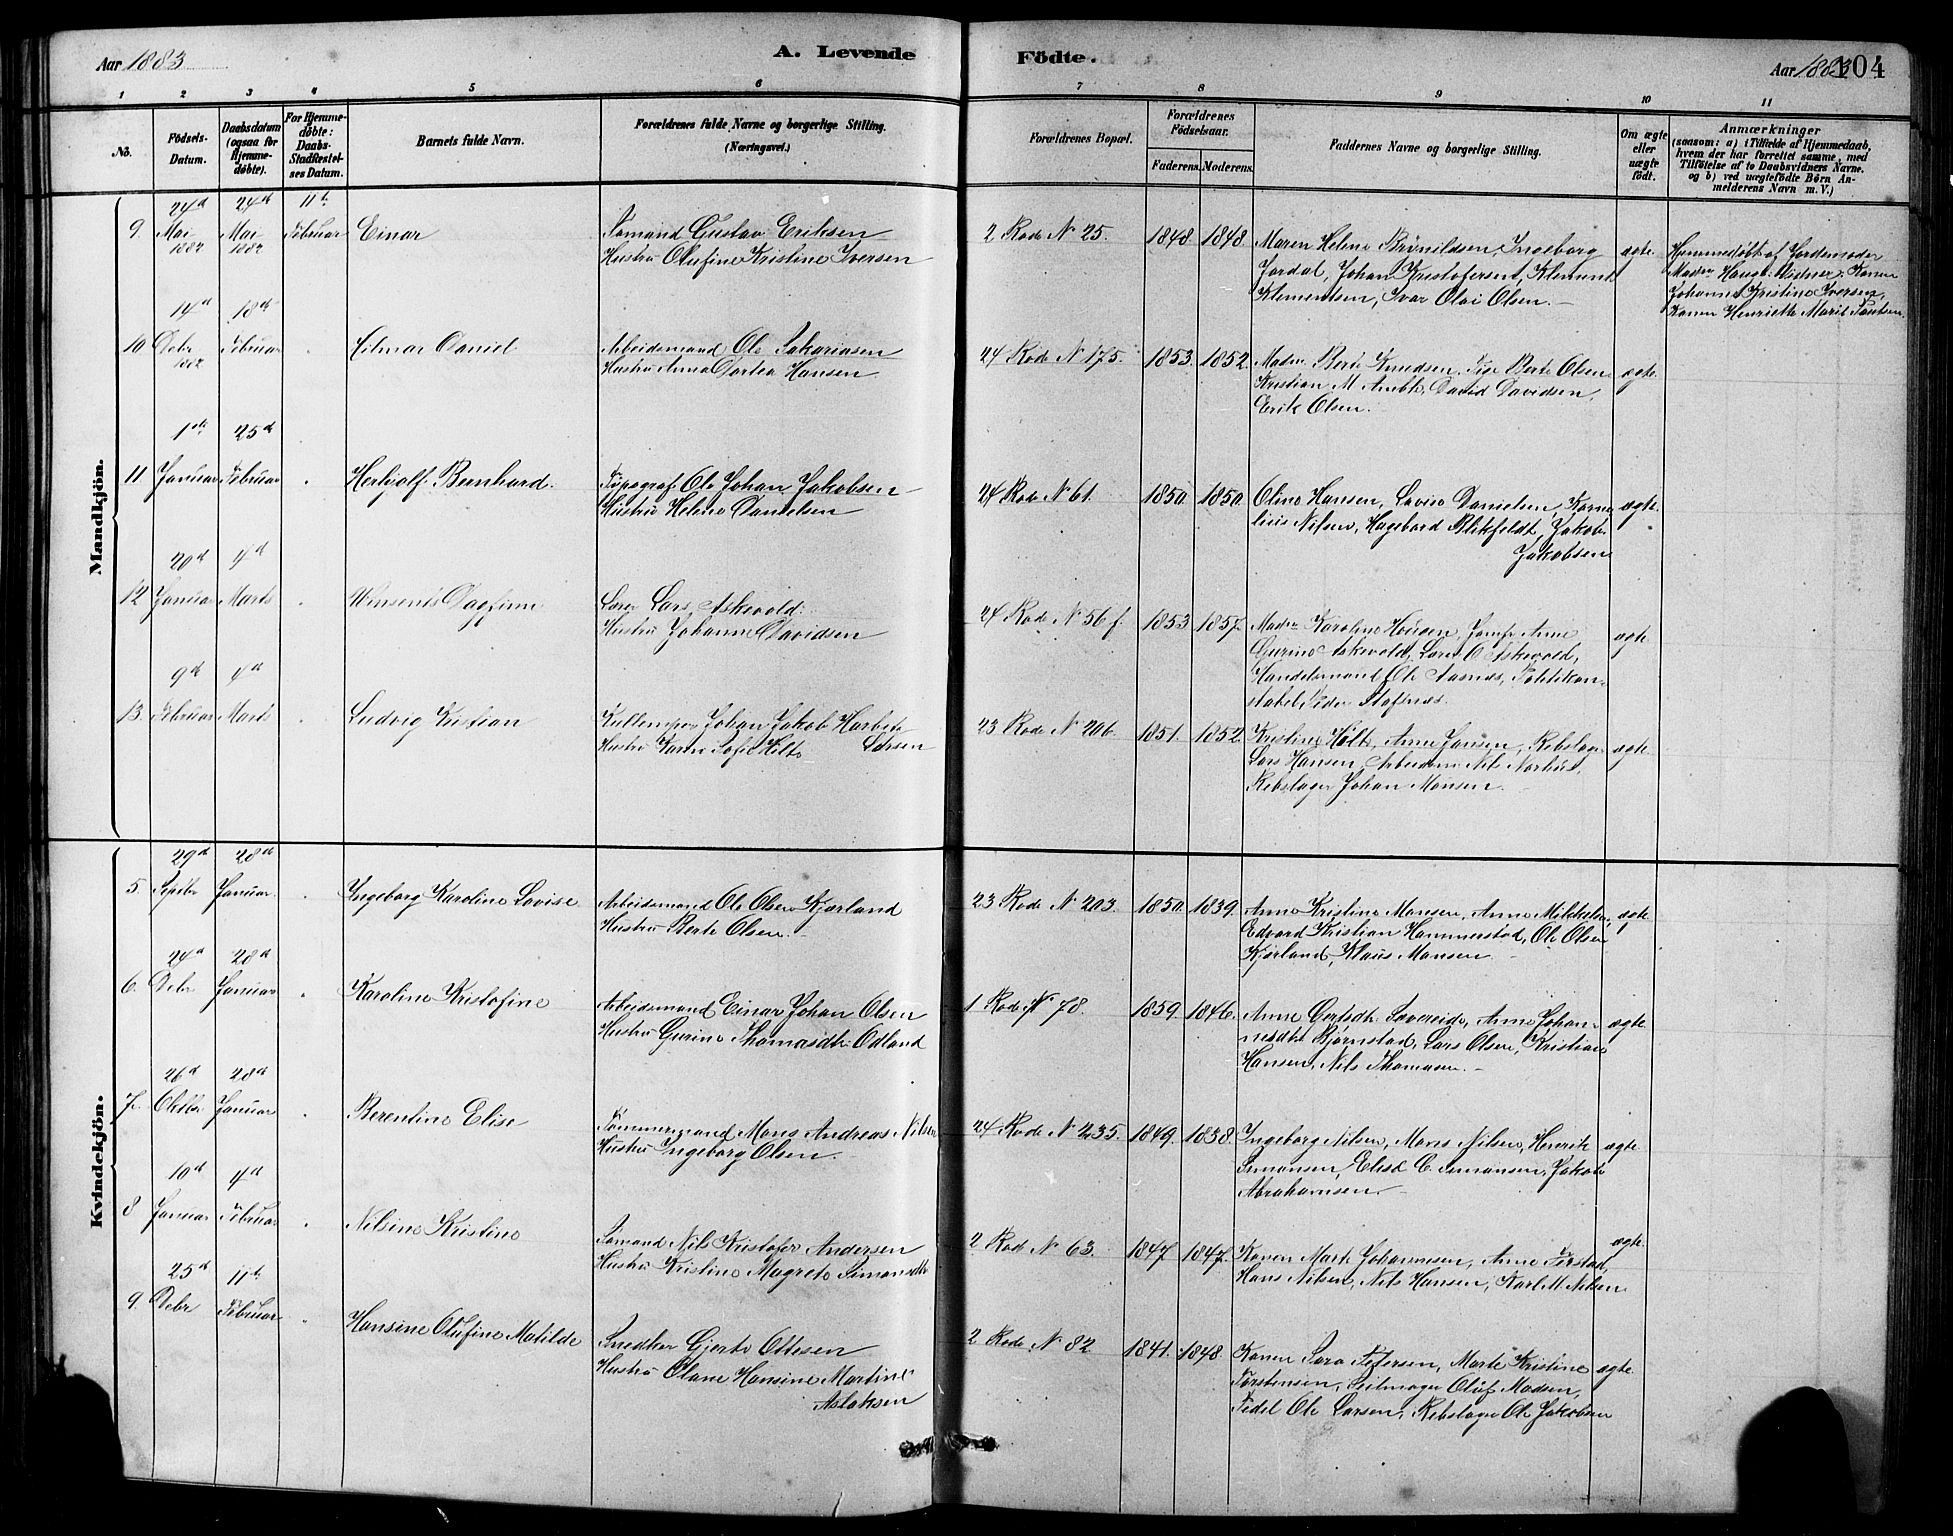 Aar 1883
A. Levende
Födte.
Aar 1883
104
1 2 3 4 5 6 7 8 9 10 11
No.
Födsels-Datum.
Daabsdatum (ogsaa for Hjemme-döbte).
For Hjemme-döbte: Daabs-Stadfestel-ses Datum.
Barnets fulde Navn.
Forældrenes fulde Navne og borgerlige Stilling. (Næringsvei.)
Forældrenes Bopæl.
Forældrenes Födselsaar.
Faderens. Moderens.
Faddernes Navne og borgerlige Stilling.
Om ægte eller uægte födt.
Anmærkninger
(saasom: a) i Tilfælde af Hjemmedaab,
hvem der har forrettet samme, med
Tilföielse af to Daabsvidners Navne.
og b) ved uægtefödte Börn An-
melderens Navn m. V.)
Mandkjön.
9. 24d Mai 1882 24d Mai 1882 11te Februar Einar
Sømand Gustav Eriksen
Hustru Olufine Kristine Iversen
2 Rode N 25. 1848. 1848.
Maren Helene Brynildsen, Ingeborg
Jordal, Johan Kristofersen, Klement
Klementsen, Ivar Olai Olsen. —
ægte.
Hjemmedøbt af Jordemoder
Madm Haugt. Vidner: Konen
Johanne Kristine Iversen,
Konen Henriette Marie Paulsen.
10 14d Debr 1882 18d Februar Hilmar Daniel
Arbeidsmand Ole Sakariasen
Hustru Anna Dortea Hansen.
24 Rode N 175. 1853. 1852.
Madm Berte Knudsen, Pige Berte Olsen
Kristian M. , David Davidsen,
Erik Olsen.
ægte.
11 1ste Januar 25d Februar Herljolf Bernhard.
Typograf Ole Johan Jakobsen
Hustru Helene Danielsen
24 Rode N 61. 1850 1850.
Oline Hansen, Lovise Danielsen, Korne-
lius Nilsen, Hagebard Blikfeldt, Jakob
Jakobsen
ægte.
12 20d Januar 4d Marts Vinsents Dagfinn
Lærer Lars Askevold.
Hustru Johanne Davidsen
24 Rode N 56 f. 1853 1857.
Madm Karoline Hansen, Jomfr Anne
Gurine Askevold, Lærer O Askevold,
Handelsmand Ole Aasnes, Politikon-
stabel Peder Stofsnæs.
ægte.
13. 9d Februar 4d Marts Ludvig Kristian
Kullemper Johan Jakob Harbits
Larsen
Hustru Karen Sofie Hilt
23 Rode N 206. 1851. 1852
Kristine Hølt, Anne Jansen, Rebslager
Lars Hansen, Arbeidsm Nils Norhus,
Rebslager Johan Monsen. —
ægte.
Kvindekjön.
5. 29d Septbr 28d Januar. Ingeborg Karoline Lovise
Arbeidsmand Ole Olsen Kjørland
Hustru Berte Olsen.
23 Rode N 203. 1850 1839.
Anne Kristine Monsen, Anne Mikkelsen,
Edvard Kristian Hammerstad, Ole Olsen
Kjørland, Klaus Monsen. —
ægte
6. 24d Debr 28d Januar Karoline Kristofine
Arbeidsmand Einar Johan Olsen
Hustru Gurine Thomasdtr. Odland
1 Rode N 78. 1859. 1846.
Anne Gertsdtr. Lovereide, Anne Johan-
nesdtr Bjørnstad, Lars Olsen, Kristian
Hansen, Nils Thomasen. —
ægte
7. 26d Oktbr 28d Januar Berentine Elise
Tømmermand Mons Andreas Nilsen
Hustru Ingeborg Olsen.
24 Rode N 235. 1849. 1838.
Ingeborg Nilsen, Mons Nilsen, Henrik
Simonsen, Elise C. Simonsen, Jakob
Abrahamsen. —
ægte.
8 10d Januar 4d Februar Nilsine Kristine
Sømand Nils Kristofer Andersen
Hustru Kristine Magrete Simonsdtr
2 Rode N 63. 1847 1847.
Konen Marte Johannesen, Anne Torstad,
Hans Nilsen, Nils Hansen, Karl M. Nilsen
ægte.
9. 25d Debr 11te Februar Hansine Olufine Matilde
Snedker Gjerts Ottesen
Hustru Olane Hansine Martine
Aslaksen
2 Rode N 82 1841. 1848.
Konen Sara Petersen, Marte Kristine
Torstensen, Seilmager Oluf Madsen,
Fidel Ole Larsen, Rebslager Ole Jakobsen
ægte